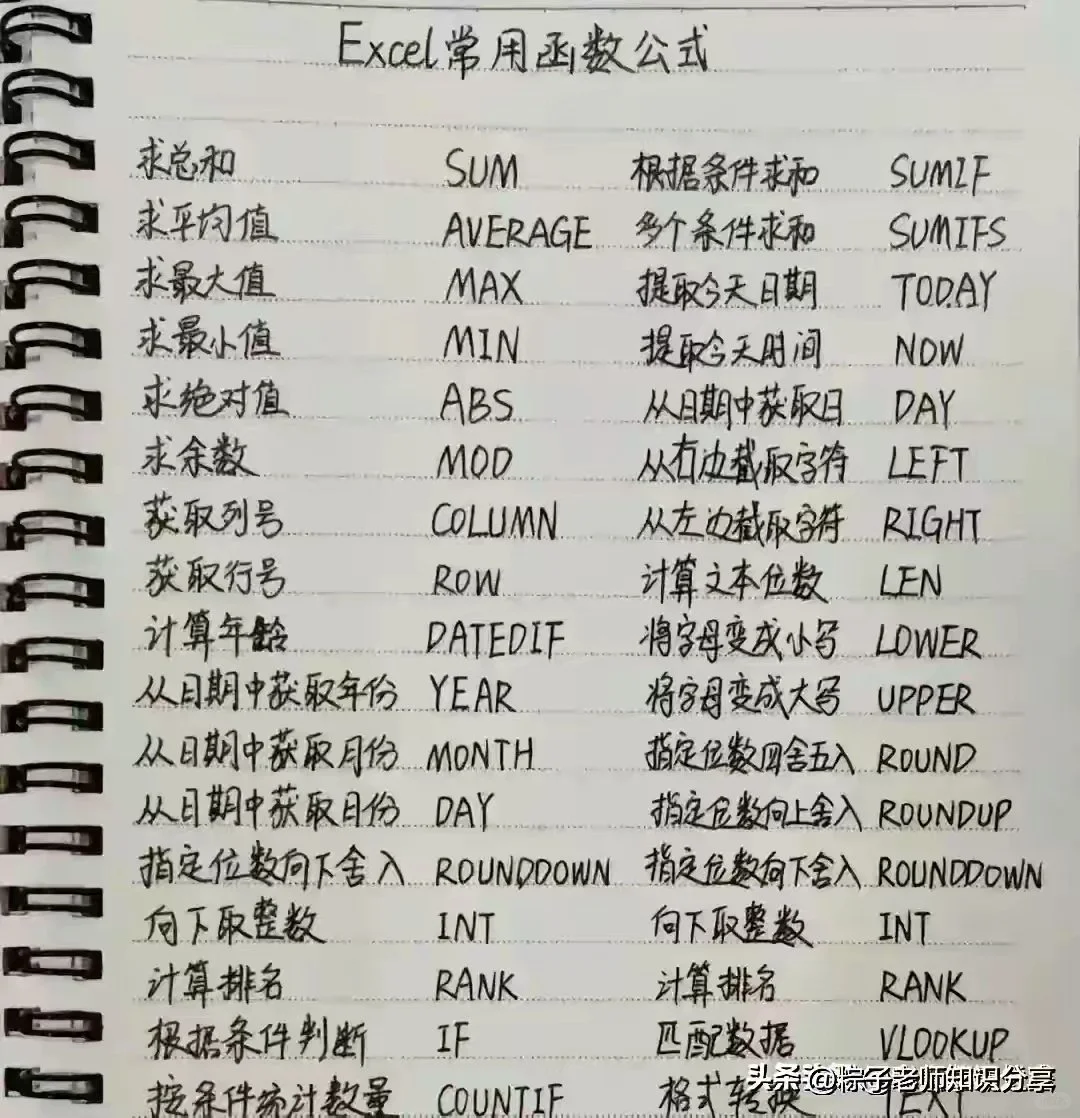 Excel常用函数公式
求总和 SUM 根据条件求和 SUMIF
求平均值 AVERAGE 多个条件求和 SUMIFS
求最大值 MAX 提取今天日期 TODAY
求最小值 MIN 提取今天时间 NOW
求绝对值 ABS 从日期中获取日 DAY
求余数 MOD 从右边截取字符 LEFT
获取列号 COLUMN 从左边截取字符 RIGHT
获取行号 ROW 计算文本位数 LEN
计算年龄 DATEDIF 将字母变成小写 LOWER
从日期中获取年份 YEAR 将字母变成大写 UPPER
从日期中获取月份 MONTH 指定位数四舍五入 ROUND
从日期中获取日份 DAY 指定位数向上舍入 ROUNDUP
指定位数向下舍入 ROUNDDOWN 指定位数向下舍入 ROUNDDOWN
向下取整数 INT 向下取整数 INT
计算排名 RANK 计算排名 RANK
根据条件判断 IF 匹配数据 VLOOKUP
按条件统计数量 COUNTIF 格式转换 TEXT
头条@粽子老师知识分享